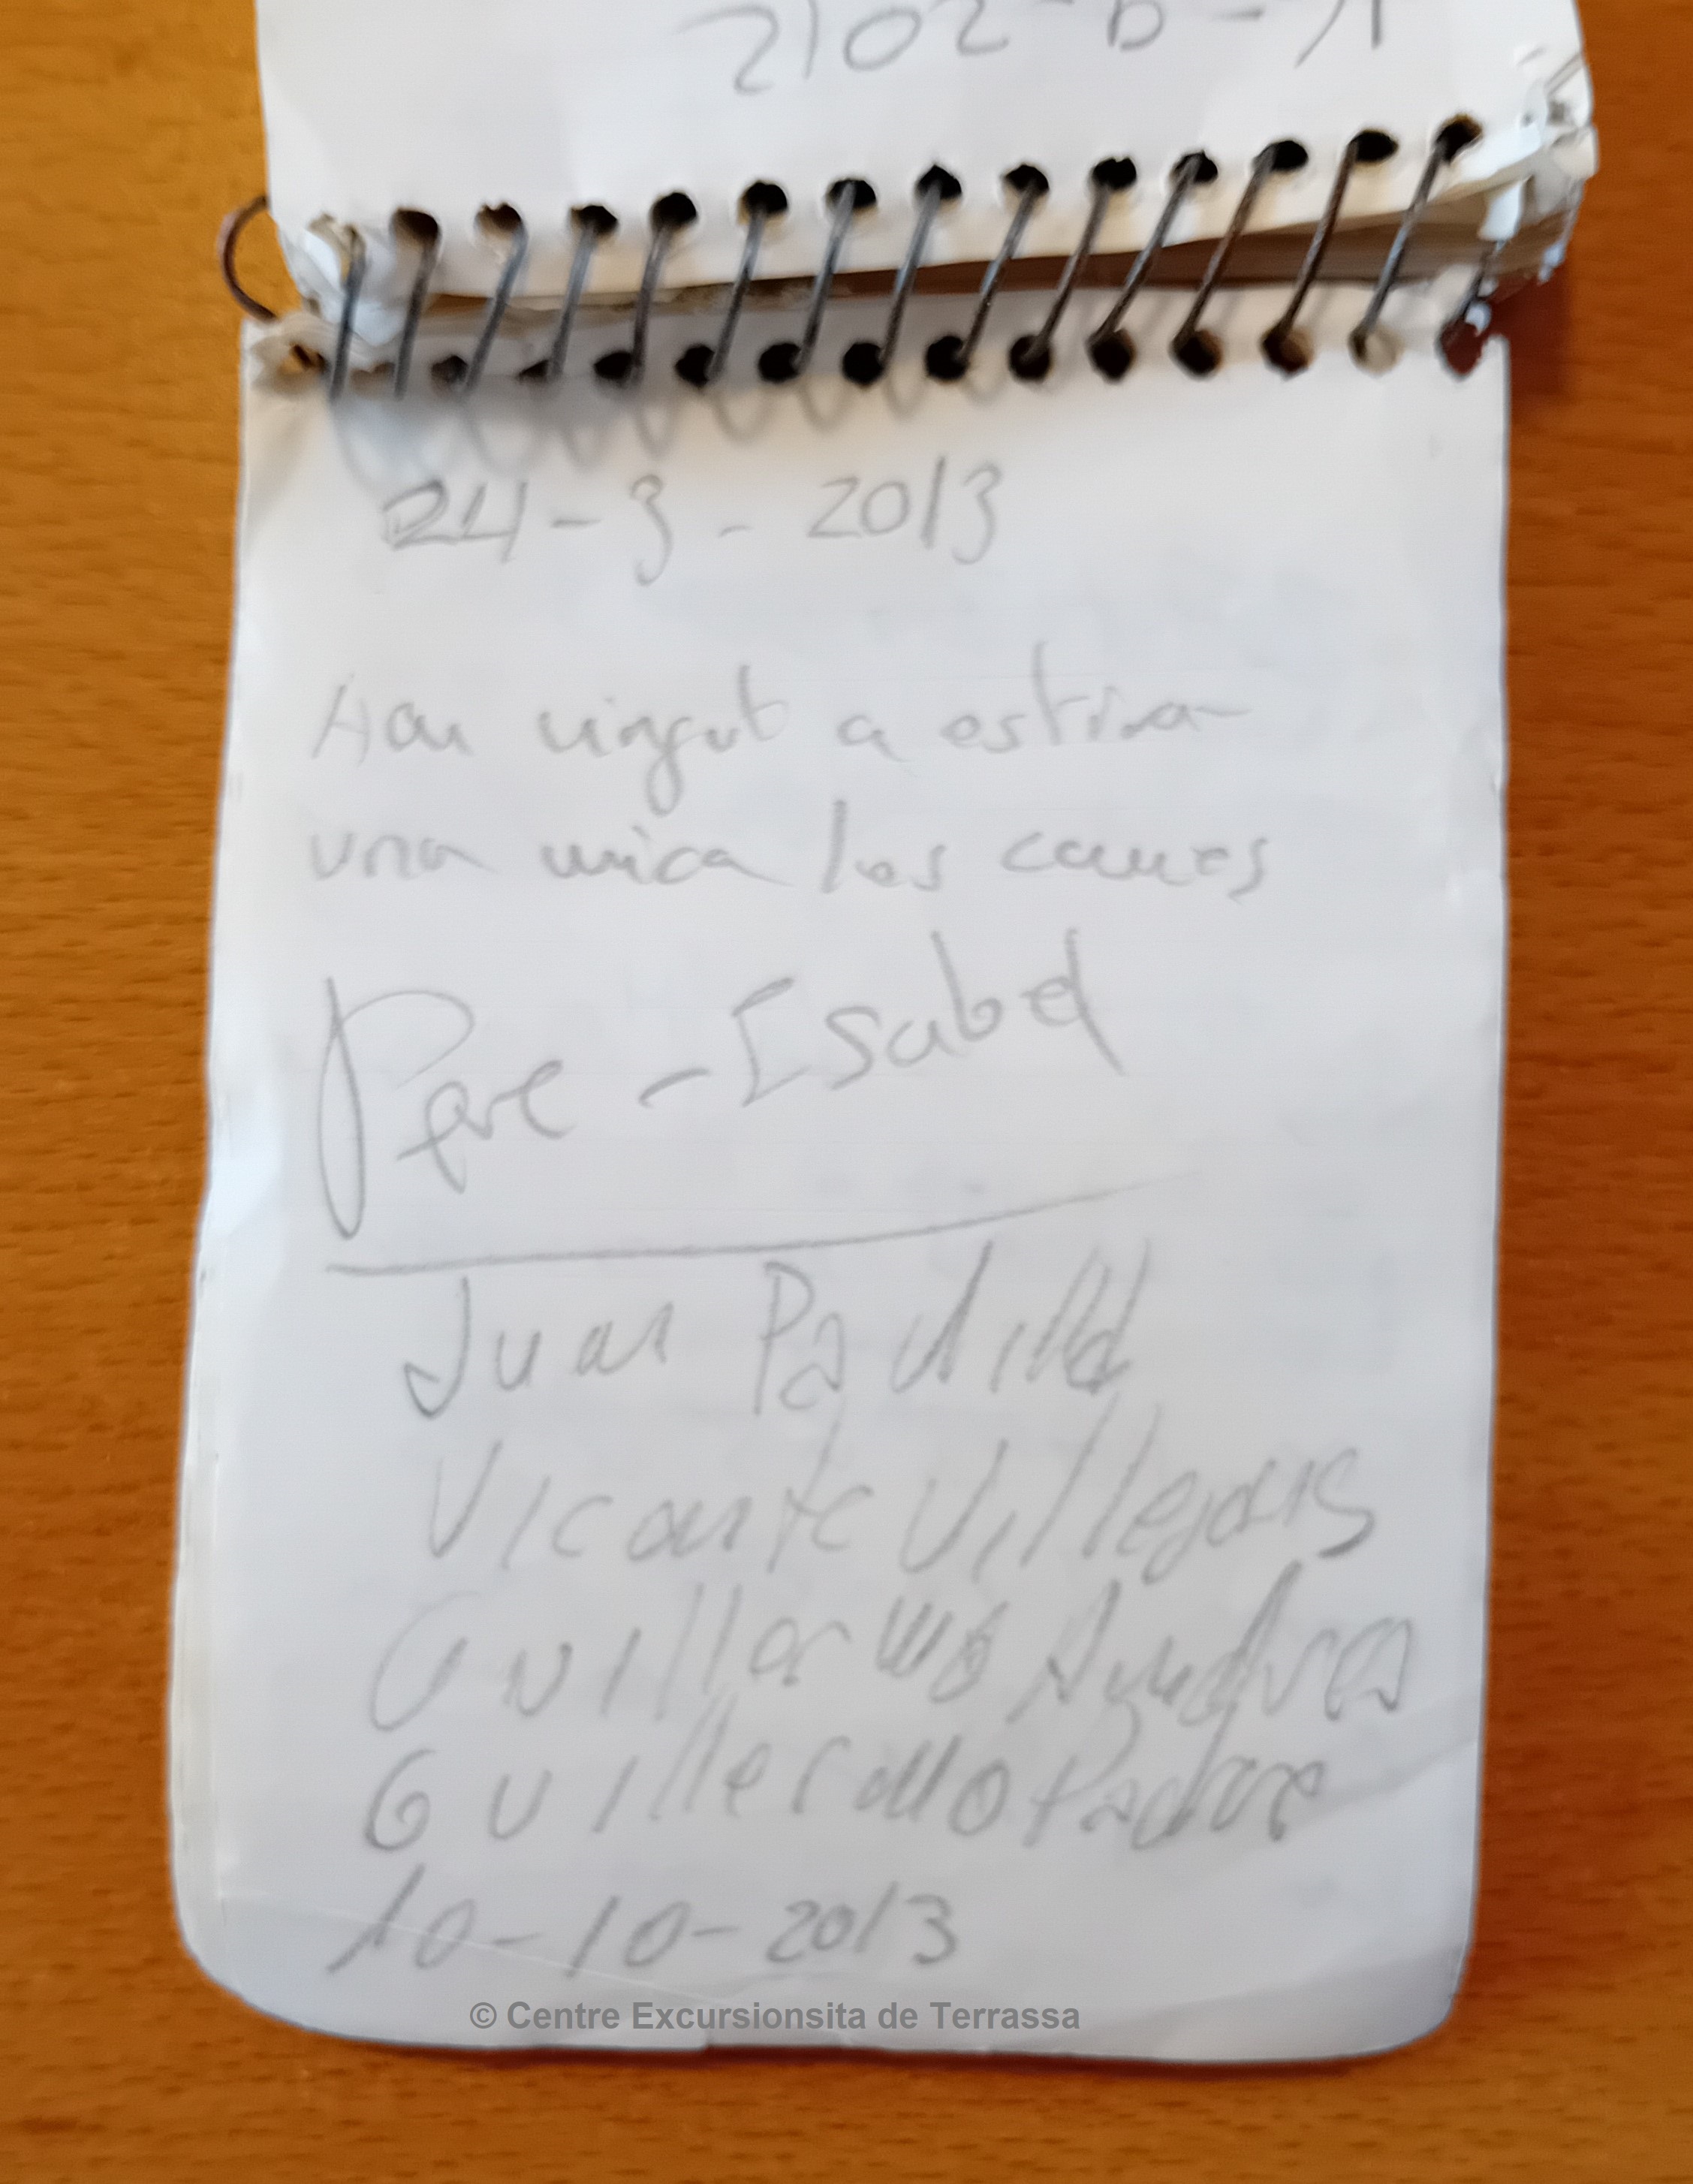 24-3-2013
Hem vingut a estirar
una mica les cames
Pere - Isabel
Juan Padilla
Vicente Villegas
Guillermo
Guillermo
10-10-2013
© Centre Excursionsita de Terrassa